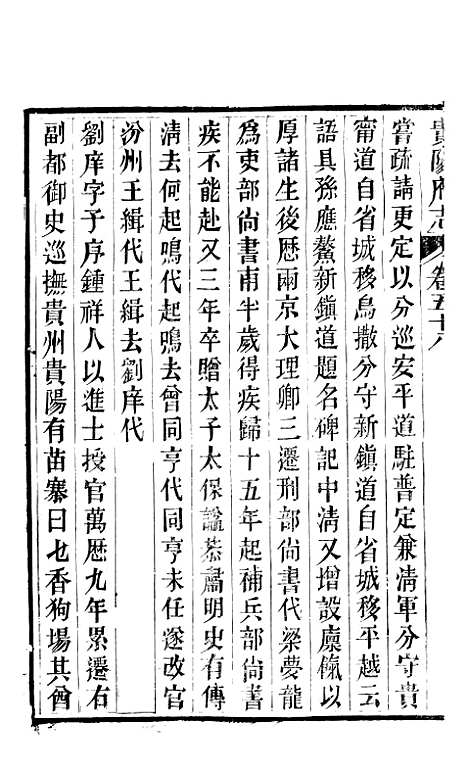 貴陽府志 卷五十八
嘗疏請更定以分巡安平道駐普定兼淸軍分守貴
甯道自省城移烏撒分守新鎭道自省城移平越云
語具孫應鰲新鎭道題名碑記中淸又增設廩餼以
厚諸生後歷兩京大理卿三遷刑部尙書代梁夢龍
爲吏部尙書甫半歲得疾歸十五年起補兵部尙書
疾不能赴又三年卒贈太子太保謚恭肅明史有傳
淸去何起鳴代起鳴去曾同亨代同亨未任遂改官
汾州王緝代王緝去劉庠代
劉庠字于序鍾祥人以進士授官萬歷九年累遷右
副都御史巡撫貴州貴陽有苗寨曰乜香狗場其酋